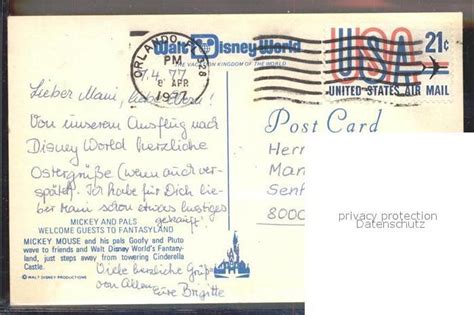 Walt Disney World
THE VACATION KINGDOM OF THE WORLD
ORLANDO, FL 328
PM
8 APR
1977
USA 21c
UNITED STATES AIR MAIL
7.4.77
Lieber Mani, liebe Vroni!
Von unserem Ausflug nach
Disney World herzliche
Ostergrüße (wenn auch ver-
spätet). Ich habe für Dich lie-
ber Mani schon etwas lustiges
gekauft!
MICKEY AND PALS
WELCOME GUESTS TO FANTASYLAND
MICKEY MOUSE and his pals Goofy and Pluto
wave to friends and Walt Disney World's Fantasy-
land, just steps away from towering Cinderella
Castle.
© WALT DISNEY PRODUCTIONS
Viele herzliche Grüße
von Allen
Eure Brigitte
Post Card
Herr
Man
Senf
8000
privacy protection
Datenschutz